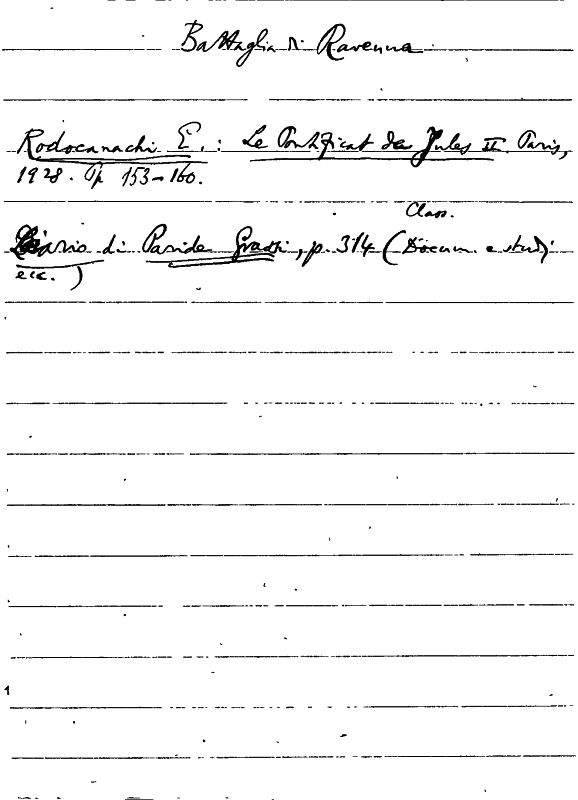 Battaglia di Ravenna
Rodocanachi E.: Le Pontificat de Jules II. Paris,
1928. Pp 153-160.
Class.
Diario di Paride Grassi, p. 314 (Docum. e studj
etc.)
1